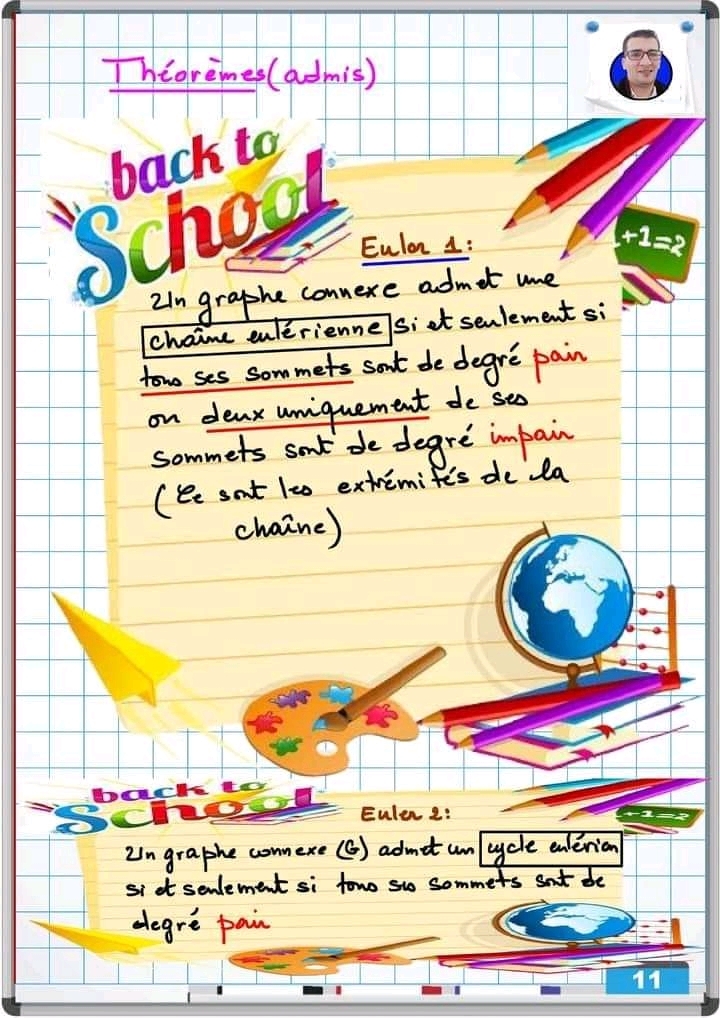 Théorèmes (admis)
back to
School
+1=2
Euler 1:
Un graphe connexe admet une
chaîne eulérienne si et seulement si
tous ses sommets sont de degré pair
ou deux uniquement de ses
sommets sont de degré impair
(Ce sont les extrémités de la
chaîne)
back to
School
+1=2
Euler 2:
Un graphe connexe (G) admet un cycle eulérien
si et seulement si tous ses sommets sont de
degré pair
11